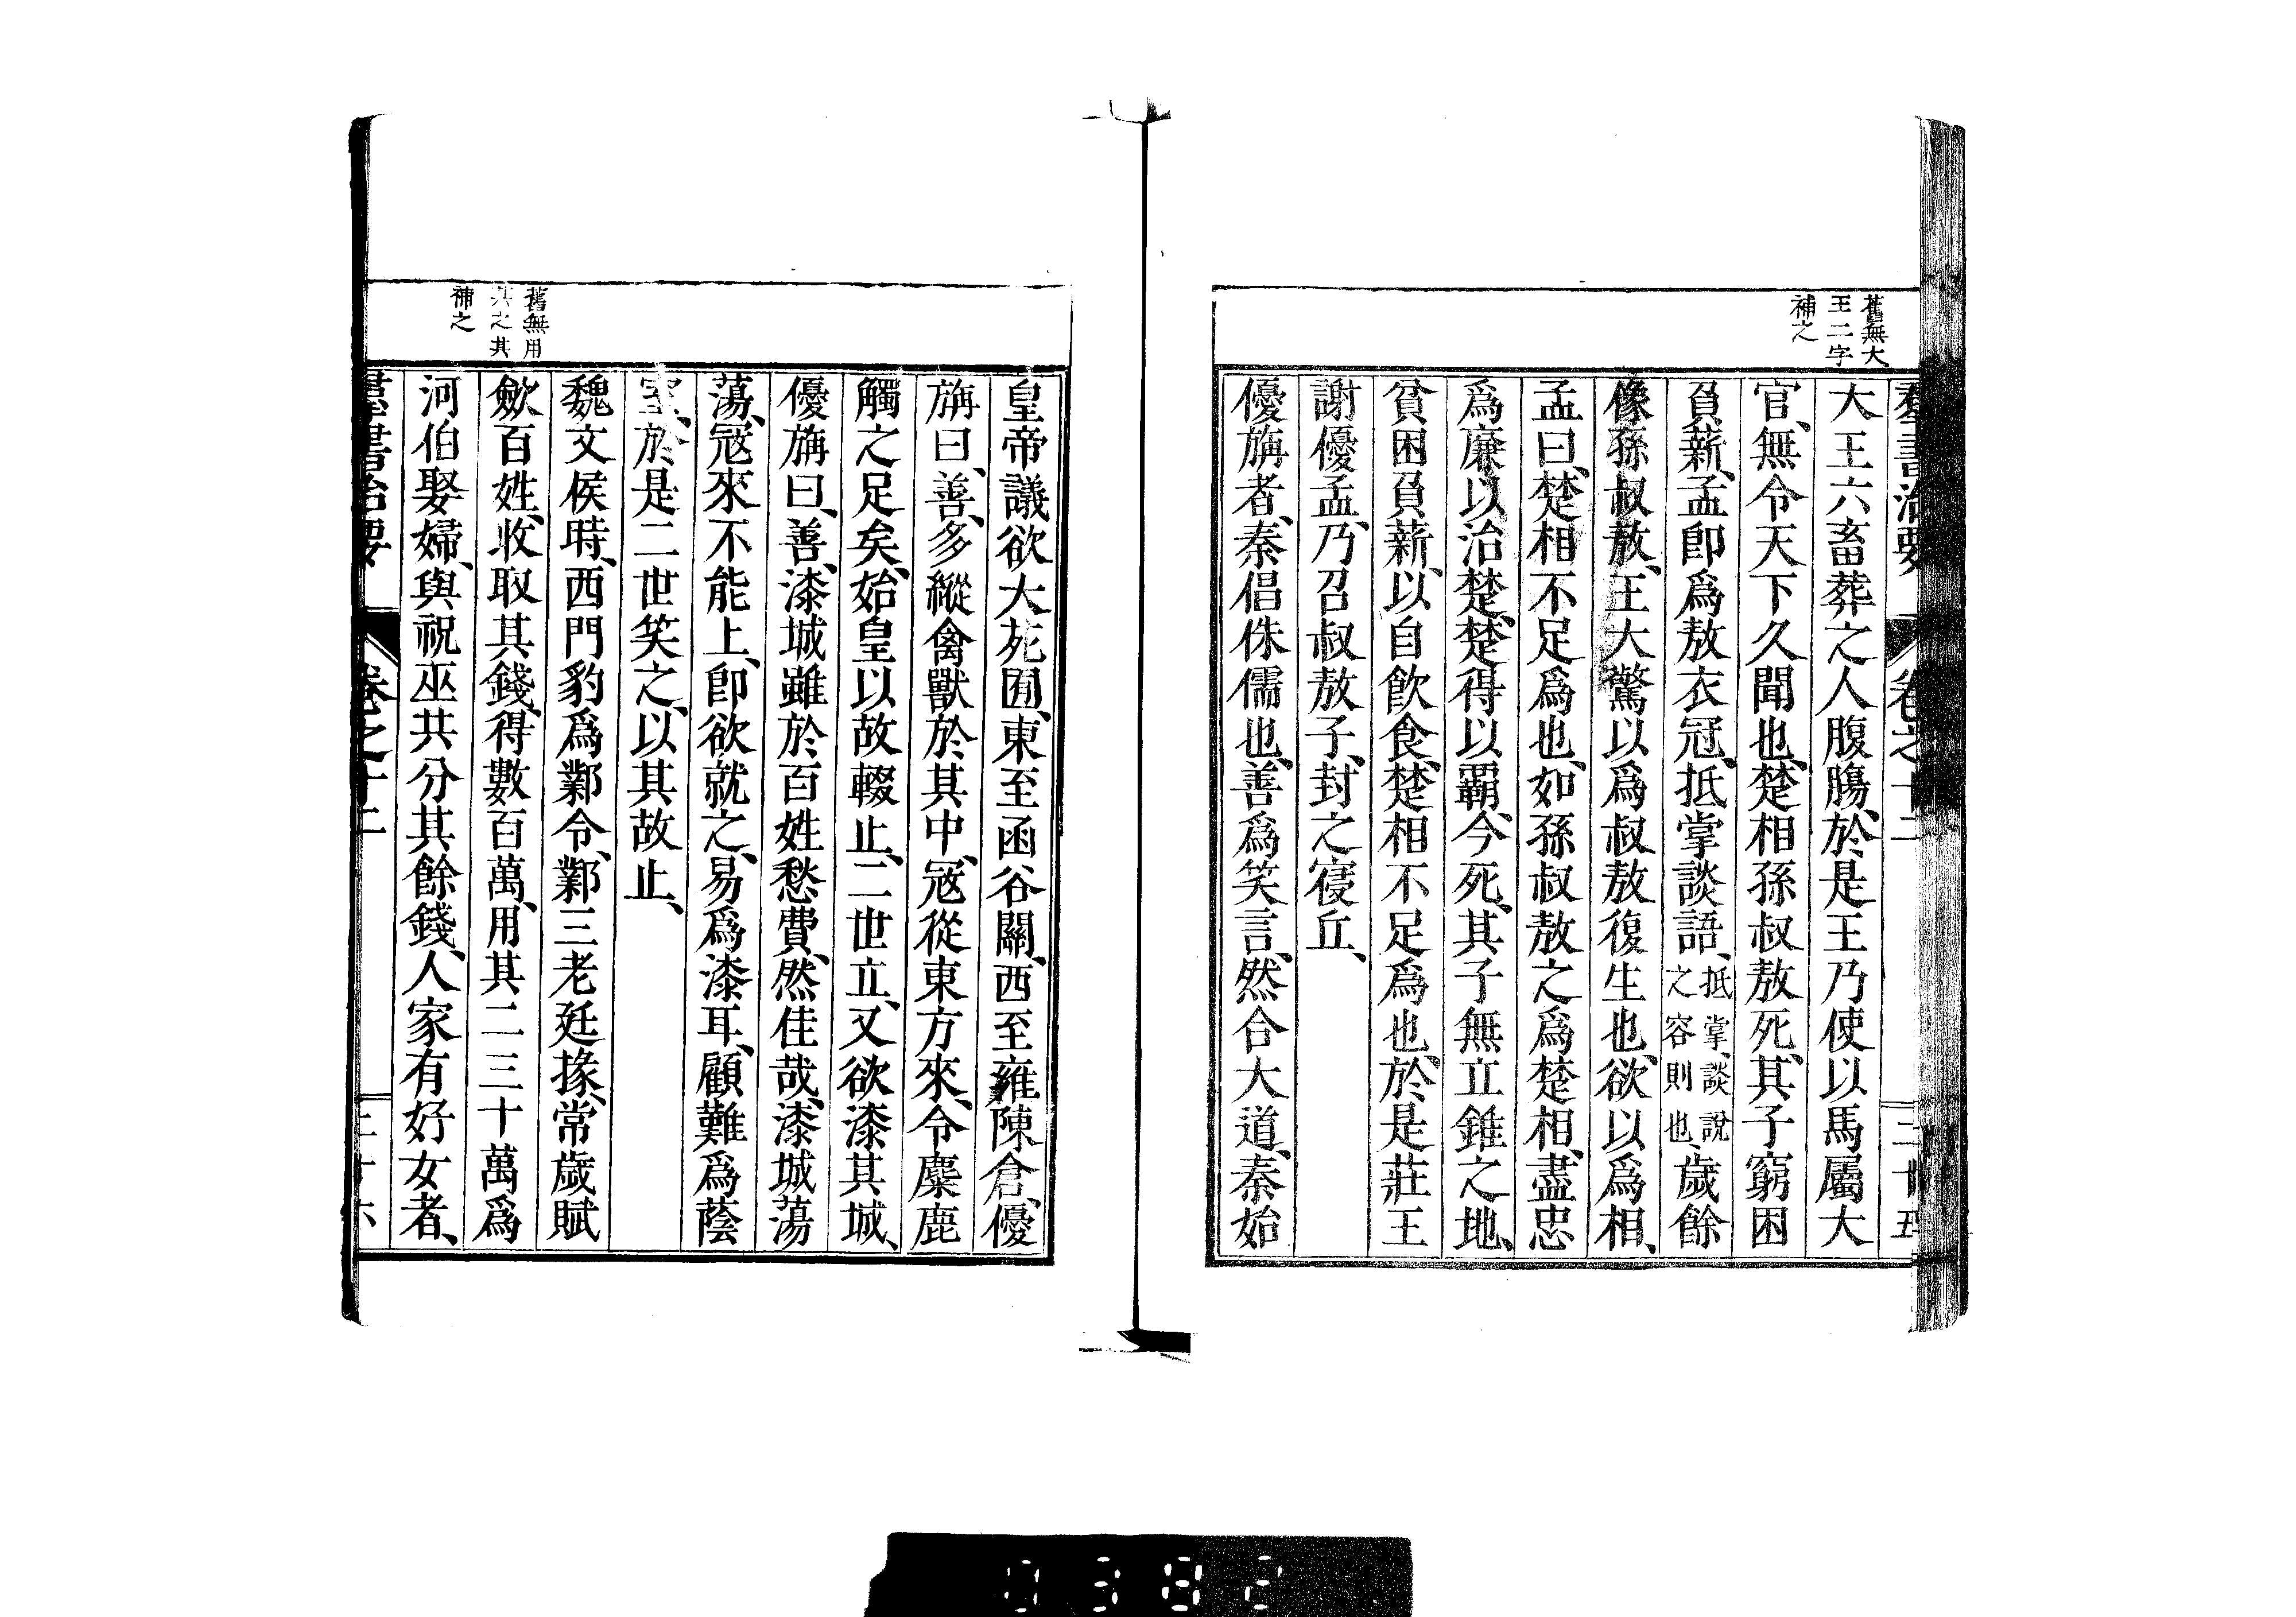 舊無大
王二字
補之
羣書治要 卷之十二 二十五
大王六畜葬之人腹腸、於是王乃使以馬屬大
官、無令天下久聞也、楚相孫叔敖死、其子窮困
負薪、孟卽爲敖衣冠、抵掌談語、抵掌、談說之容則也、歲餘
像孫叔敖、王大驚以爲叔敖復生也、欲以爲相、
孟曰、楚相不足爲也、如孫叔敖之爲楚相、盡忠
爲廉以治楚、楚得以霸、今死、其子無立錐之地、
貧困負薪、以自飲食、楚相不足爲也、於是莊王
謝優孟、乃召叔敖子、封之寢丘、
優旃者、秦倡侏儒也、善爲笑言、然合大道、秦始
皇帝議欲大苑囿、東至函谷關、西至雍陳倉、優
旃曰、善、多縱禽獸於其中、寇從東方來、令麋鹿
觸之足矣、始皇以故輟止、二世立、又欲漆其城、
優旃曰、善、漆城雖於百姓愁費、然佳哉、漆城蕩
蕩、寇來不能上、卽欲就之、易爲漆耳、顧難爲蔭
室、於是二世笑之、以其故止、
舊無用
其之其
補之
魏文侯時、西門豹爲鄴令、鄴三老廷掾、常歲賦
斂百姓、收取其錢、得數百萬、用其二三十萬爲
河伯娶婦、與祝巫共分其餘錢、人家有好女者、
羣書治要 卷之十二 二十六
0382